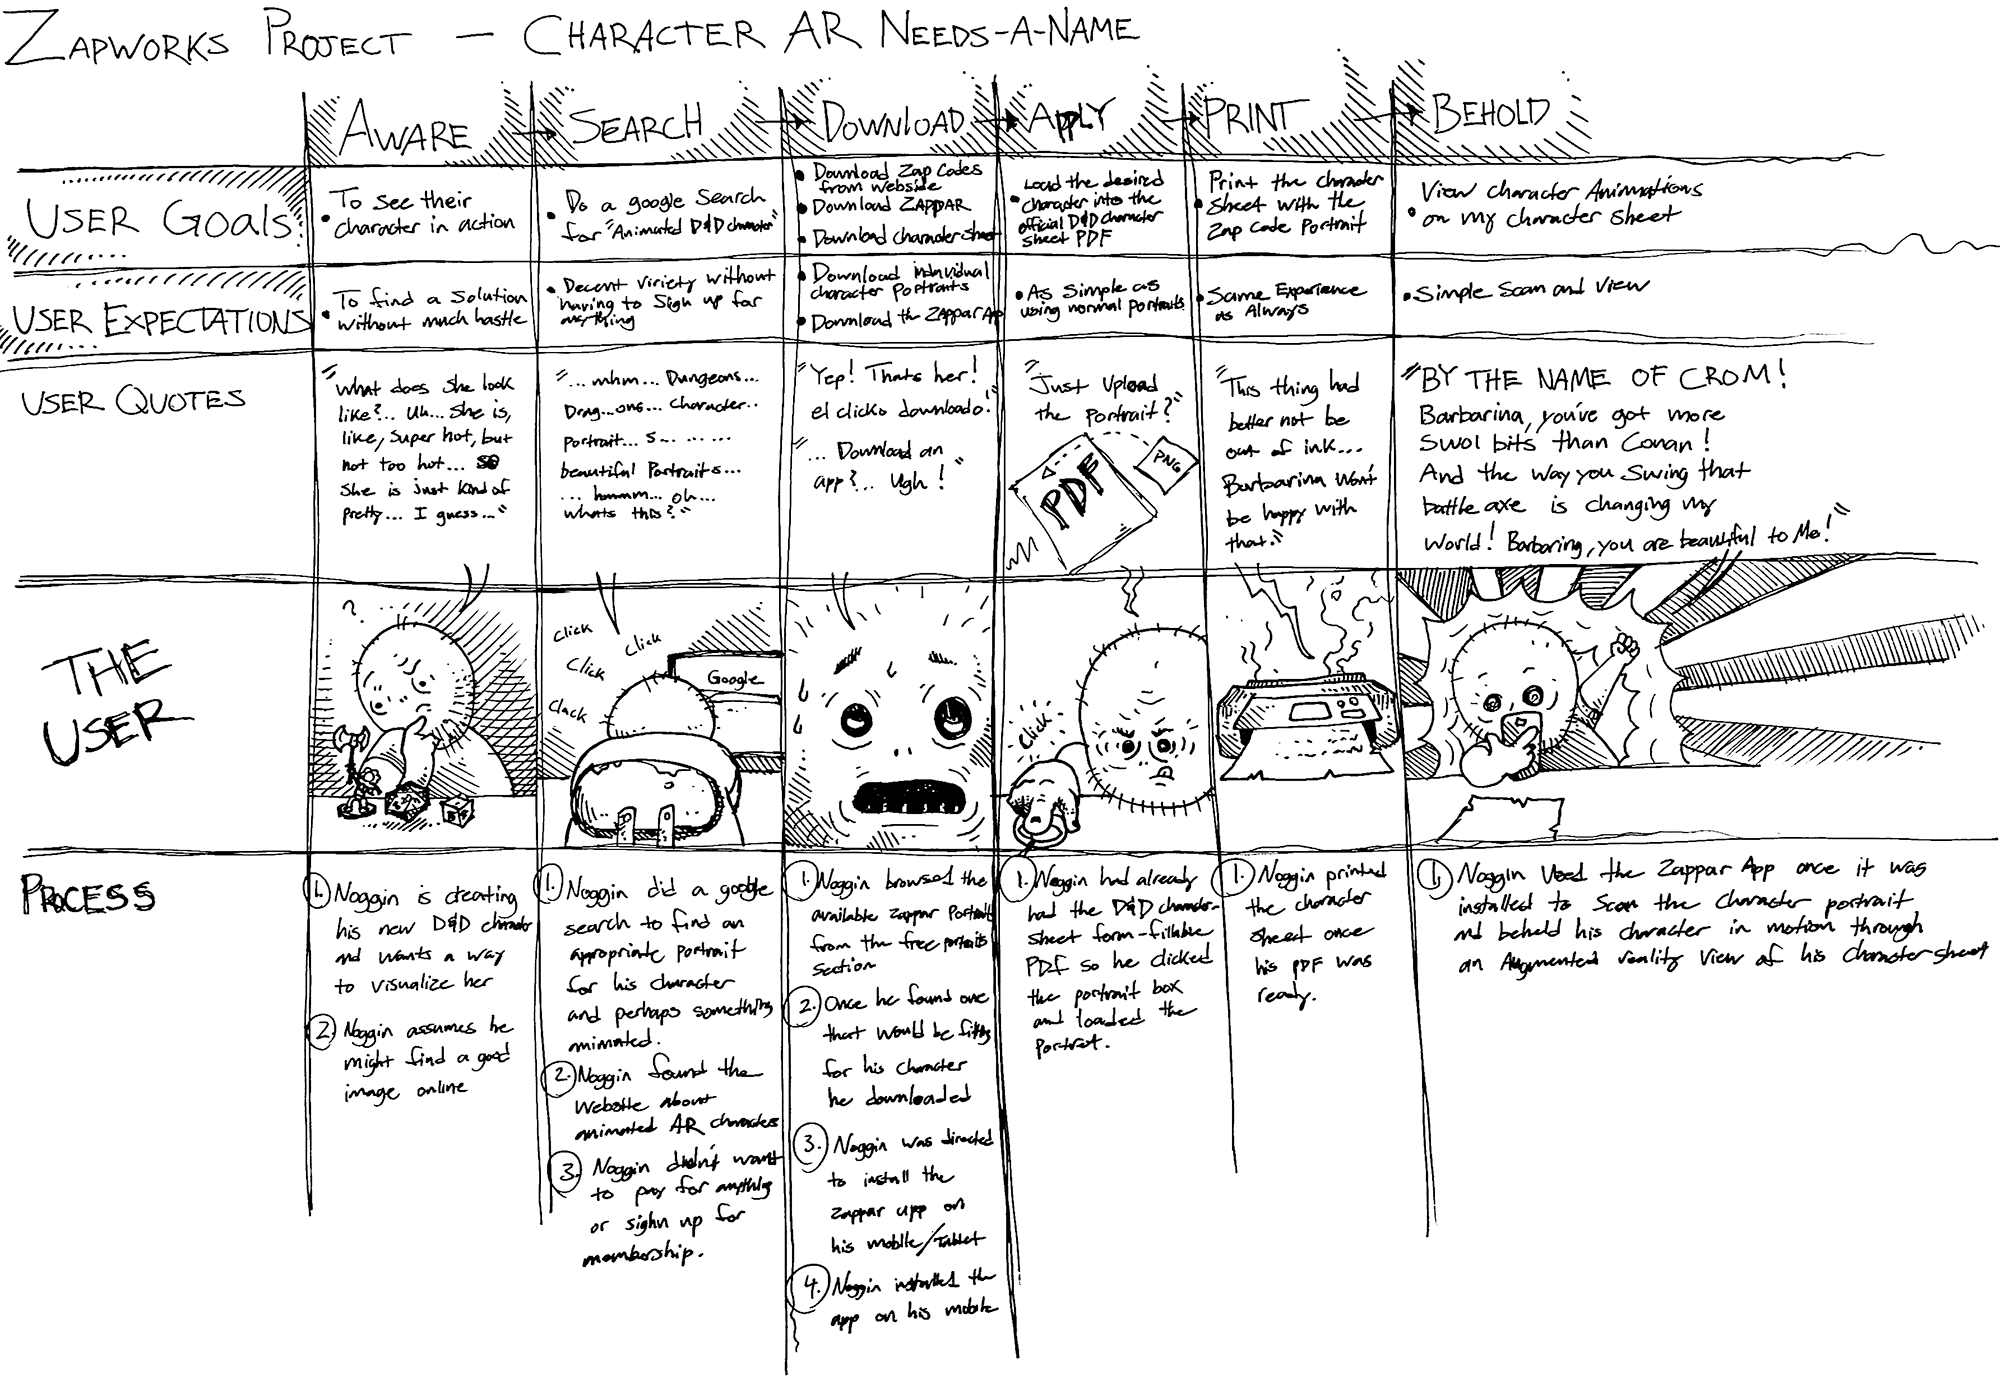 ZAPWORKS PROJECT — CHARACTER AR NEEDS-A-NAME
AWARE
SEARCH
DOWNLOAD
APPLY
PRINT
BEHOLD
USER GOALS
• To see their
character in action
• Do a google search
for "Animated D&D character"
• Download Zap Codes
from webside
• Download ZAPPAR
• Download character sheet
• Load the desired
character into the
official D&D character
sheet PDF
• Print the character
sheet with the
Zap Code Portrait
• View character Animations
on my character sheet
USER EXPECTATIONS
• To find a solution
without much hastle
• Decent viriety without
having to sign up for
anything
• Download individual
character portraits
• Download the Zappar App
• As simple as
using normal portraits
• Same Experience
as Always
• Simple Scan and View
USER QUOTES
"What does she look
like?.. Uh... She is,
like, super hot, but
not too hot... so
she is just kind of
pretty... I guess..."
"... mhm... Dungeons...
Drag...ons... Character..
portrait... s... ... ...
beautiful Portraits...
... hummm... oh...
whats this?"
"Yep! Thats her!
el clicko downloado!"
"... Download an
app?.. Ugh!"
"Just Upload
the Portrait?"
PDF
PNG
"This thing had
better not be
out of ink...
Barbarina Won't
be happy with
that."
"BY THE NAME OF CROM!
Barbarina, you've got more
swol bits than Conan!
And the way you swing that
battle axe is changing my
World! Barbarina, you are beautiful to Me!"
THE
USER
?
Click
Click
Click
Clack
Google
Click
PROCESS
1. Noggin is creating
his new D&D character
and wants a way
to visualize her
2. Noggin assumes he
might find a good
image online
1. Noggin did a google
search to find an
appropriate portrait
for his character
and perhaps something
animated.
2. Noggin found the
website about
animated AR characters
3. Noggin didn't want
to pay for anything
or sighn up for
membership.
1. Noggin browsed the
available Zappar Portraits
from the free portraits
section
2. Once he found one
that would be fitting
for his character
he downloaded
3. Noggin was directed
to install the
Zappar app on
his mobile/Tablet
4. Noggin installed the
app on his mobile
1. Noggin had already
had the D&D character-
sheet form-fillable
PDF so he clicked
the portrait box
and loaded the
Portrait.
1. Noggin printed
the character
sheet once
his PDF was
ready.
1. Noggin Used the Zappar App once it was
installed to Scan the Character portrait
and beheld his character in motion through
an Augmented reality view of his character sheet